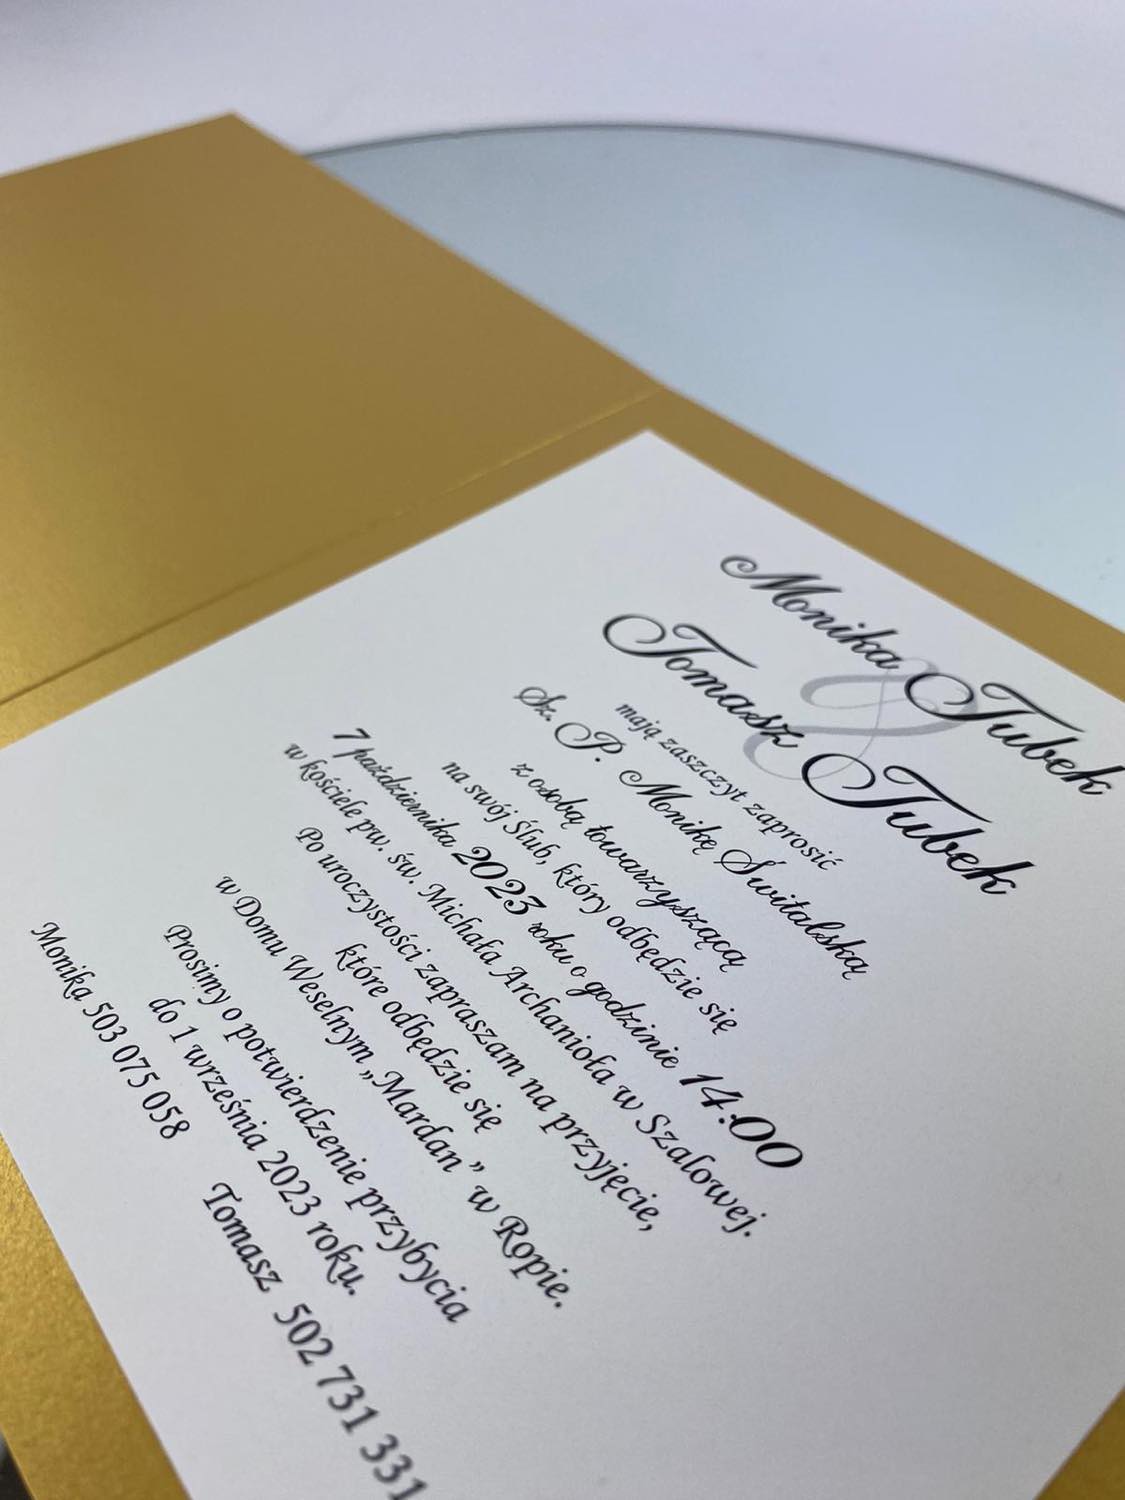 Monika Tubek
&
Tomasz Tubek
mają zaszczyt zaprosić
Sz. P. Monikę Świtalską
z osobą towarzyszącą
na swój Ślub, który odbędzie się
7 października 2023 roku o godzinie 14:00
w kościele pw. św. Michała Archanioła w Szalowej.
Po uroczystości zapraszam na przyjęcie,
które odbędzie się
w Domu Weselnym „Mardan” w Ropie.
Prosimy o potwierdzenie przybycia
do 1 września 2023 roku.
Monika 503 075 058 Tomasz 502 731 331